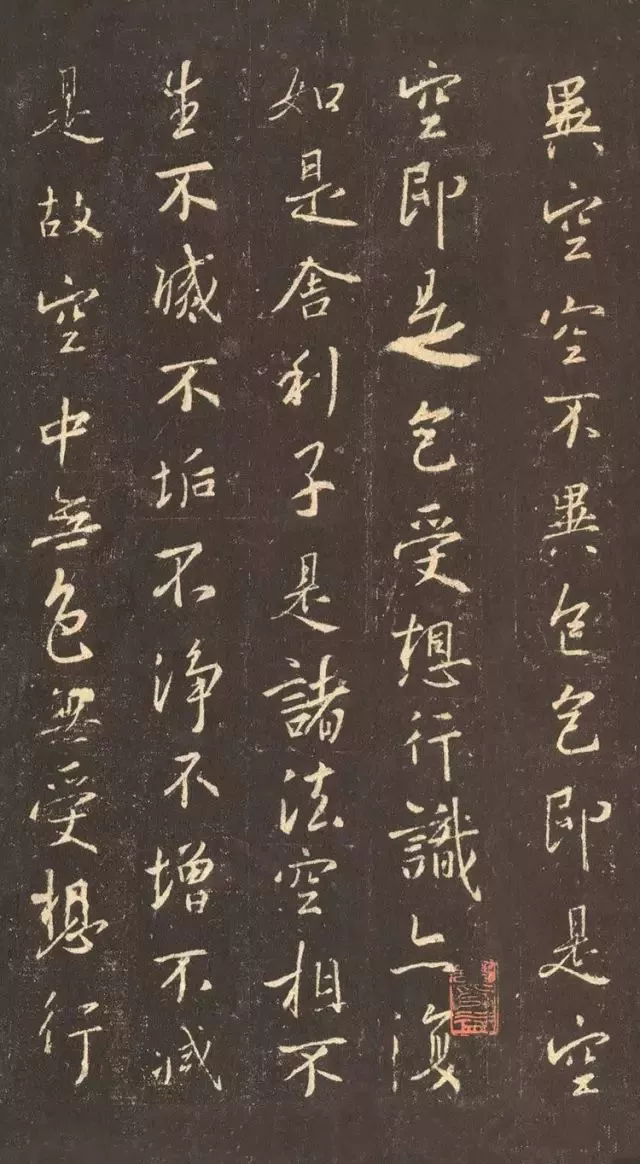 異空空不異色色即是空
空即是色受想行識亦復
如是舍利子是諸法空相不
生不滅不垢不淨不增不減
是故空中無色無受想行